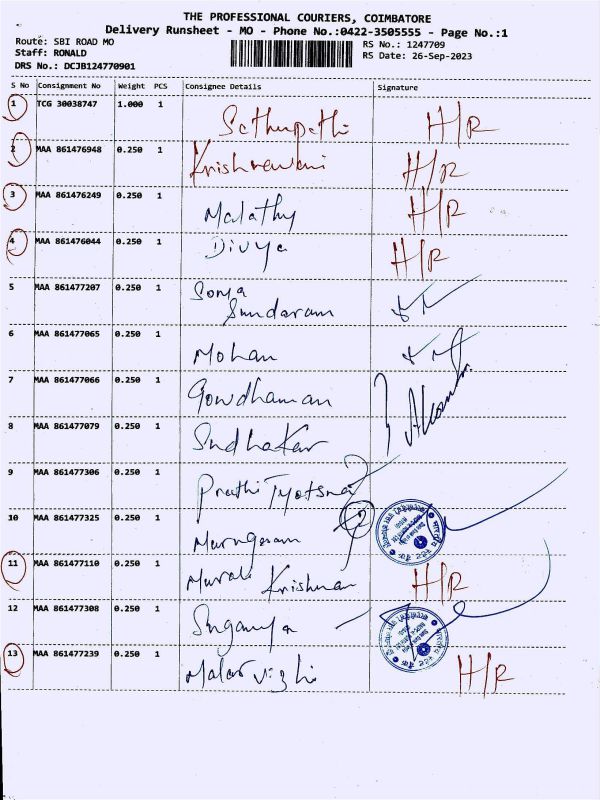 THE PROFESSIONAL COURIERS, COIMBATORE
Delivery Runsheet - MO - Phone No.:0422-3505555 - Page No.:1
Route: SBI ROAD MO
Staff: RONALD
DRS No.: DCJB124770901
RS No.: 1247709
RS Date: 26-Sep-2023
S No Consignment No Weight PCS Consignee Details Signature
1 TCG 30038747 1.000 1 Sethupathi H/R
2 MAA 861476948 0.250 1 Krishnaveni H/R
3 MAA 861476249 0.250 1 Malathy H/R
4 MAA 861476044 0.250 1 Divya H/R
5 MAA 861477207 0.250 1 Soma
Sundaram
6 MAA 861477065 0.250 1 Mohan
7 MAA 861477066 0.250 1 Gowdhaman
8 MAA 861477079 0.250 1 Sudhakar
9 MAA 861477306 0.250 1 Preethi Jyotsna
10 MAA 861477325 0.250 1 Murugesan
11 MAA 861477110 0.250 1 Murali Krishnan H/R
12 MAA 861477308 0.250 1 Suganya
13 MAA 861477239 0.250 1 Malar vizhi H/R